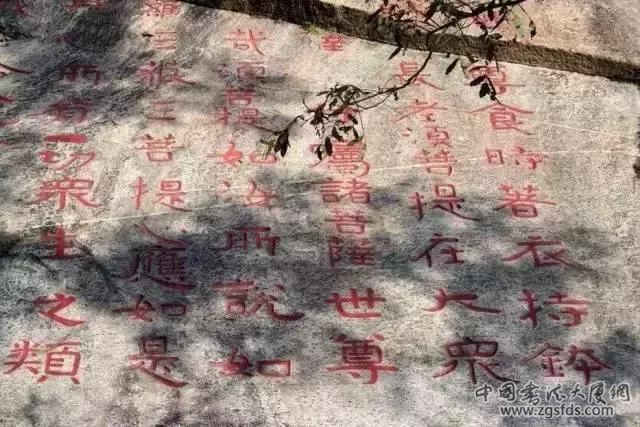 尊食時著衣持鉢
長老須菩提在大眾
屬諸菩薩世尊
哉須菩提如汝所說如
羅三藐三菩提心應如是
所有一切眾生之類
中國書法大厦網
www.zgsfds.com